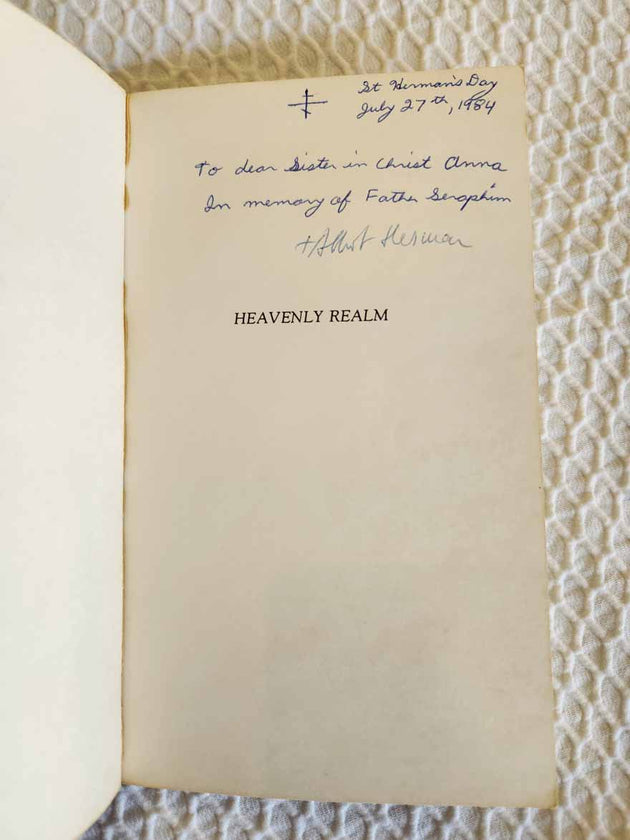 St Herman's Day
July 27th, 1984
To dear Sister in Christ Anna
In memory of Father Seraphim
+Abbot Herman
HEAVENLY REALM